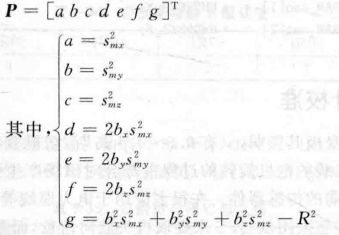 P = [a b c d e f g]^T
a = s_{mx}^2
b = s_{my}^2
c = s_{mz}^2
其中, d = 2b_x s_{mx}^2
e = 2b_y s_{my}^2
f = 2b_z s_{mz}^2
g = b_x^2 s_{mx}^2 + b_y^2 s_{my}^2 + b_z^2 s_{mz}^2 − R^2